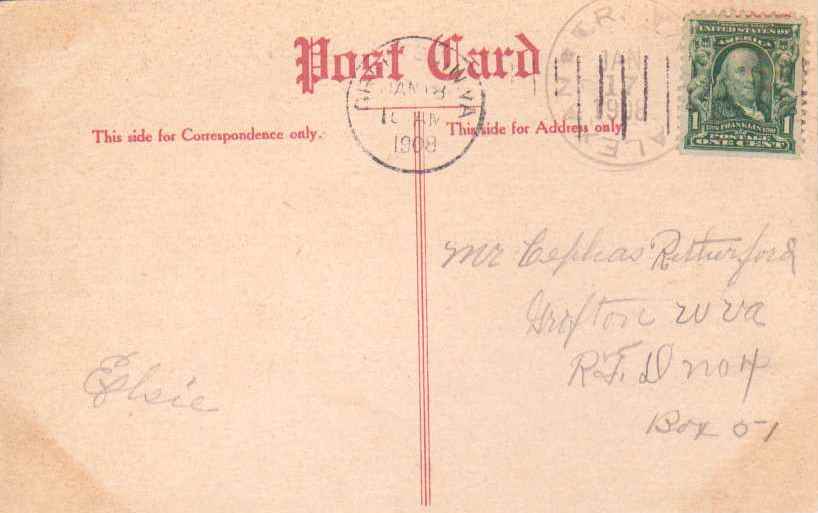 Post Card
This side for Correspondence only.
This side for Address only.
W VA
JAN 18
1908
JAN
17
1908
UNITED STATES OF
AMERICA
FRANKLIN
1 1
POSTAGE
ONE CENT
Mr Cephas Rutherford
Grafton W va
R.F.D no 4
Box 51
Elsie